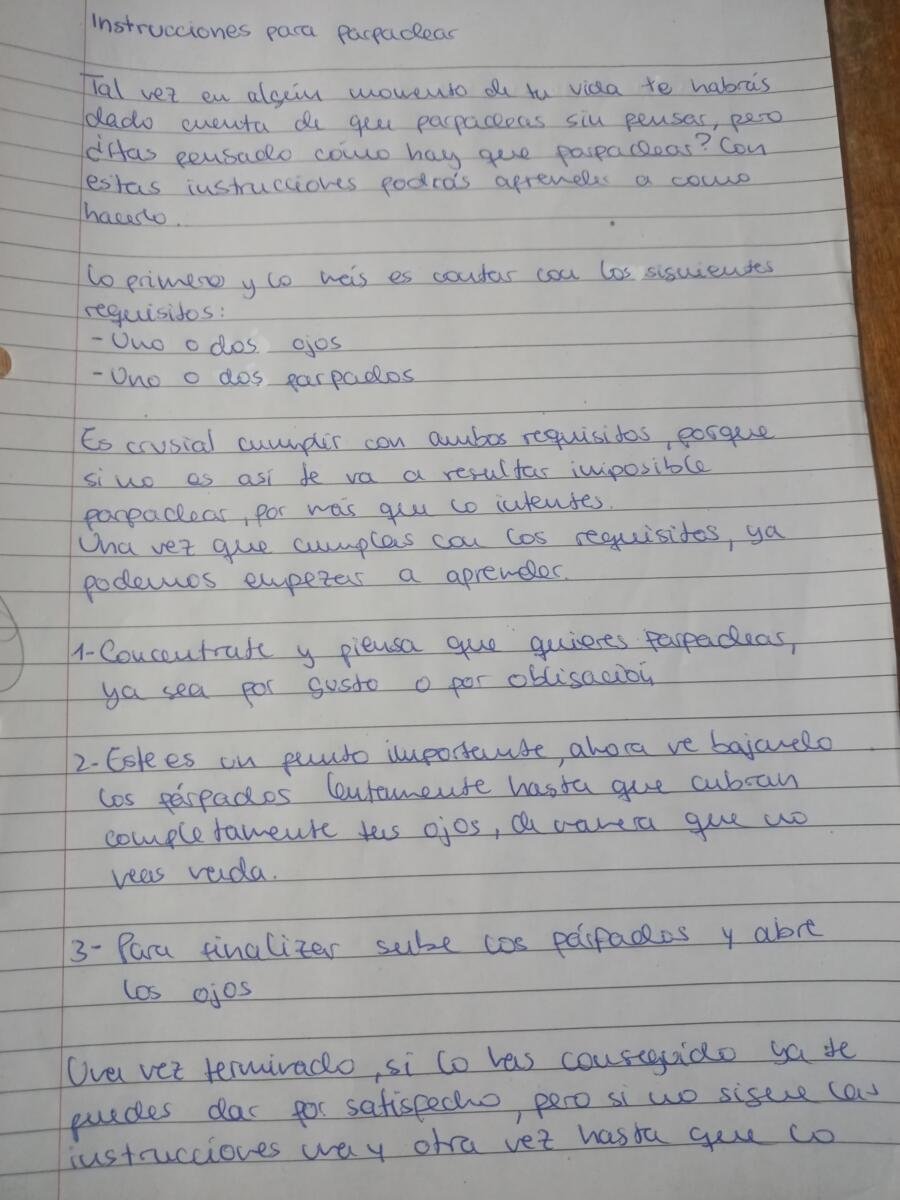 Instrucciones para parpadear
Tal vez en algún momento de tu vida te habrás
dado cuenta de que parpadeas sin pensar, pero
¿Has pensado cómo hay que parpadear? Con
estas instrucciones podrás aprender a como
hacerlo.
Lo primero y lo más es contar con los siguientes
requisitos:
- Uno o dos ojos
- Uno o dos parpados
Es crusial cumplir con ambos requisitos, porque
si no es así te va a resultar imposible
parpadear, por más que lo intentes.
Una vez que cumplas con los requisitos, ya
podemos empezar a aprender.
1- Concentrate y piensa que quieres parpadear,
ya sea por gusto o por obligación
2- Este es un punto importante, ahora ve bajando
los párpados lentamente hasta que cubran
completamente tus ojos, de manera que no
veas nada.
3- Para finalizar sube los párpados y abre
los ojos
Una vez terminado, si lo has conseguido ya te
puedes dar por satisfecho, pero si no sigue las
instrucciones una y otra vez hasta que lo